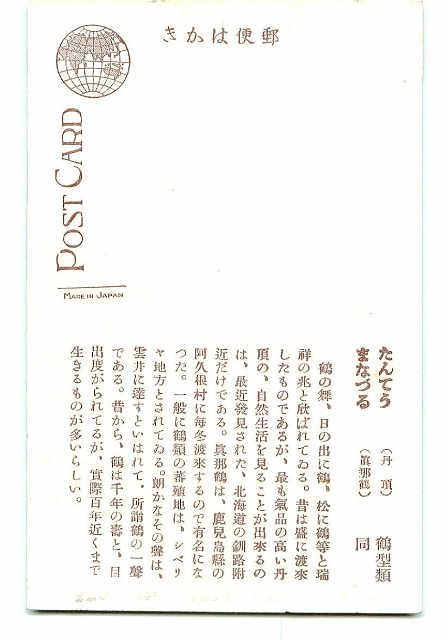 郵便はかき
POST CARD
MADE IN JAPAN
たんてう (丹頂) 鶴型類
まなづる (眞那鶴) 同
鶴の舞、日の出に鶴、松に鶴等と瑞
祥の兆と欣ばれてゐる。昔は盛に渡來
したものであるが、最も氣品の高い丹
頂の、自然生活を見ることが出來るの
は、最近發見された、北海道の釧路附
近だけである。眞那鶴は、鹿兒島縣の
阿久根村に毎冬渡來するので有名にな
つた。一般に鶴類の蕃殖地は、シベリ
ヤ地方とされてゐる。朗かなその聲は、
雲井に達すといはれて、所謂鶴の一聲
である。昔から、鶴は千年の壽と、目
出度がられてるが、實際百年近くまで
生きるものが多いらしい。